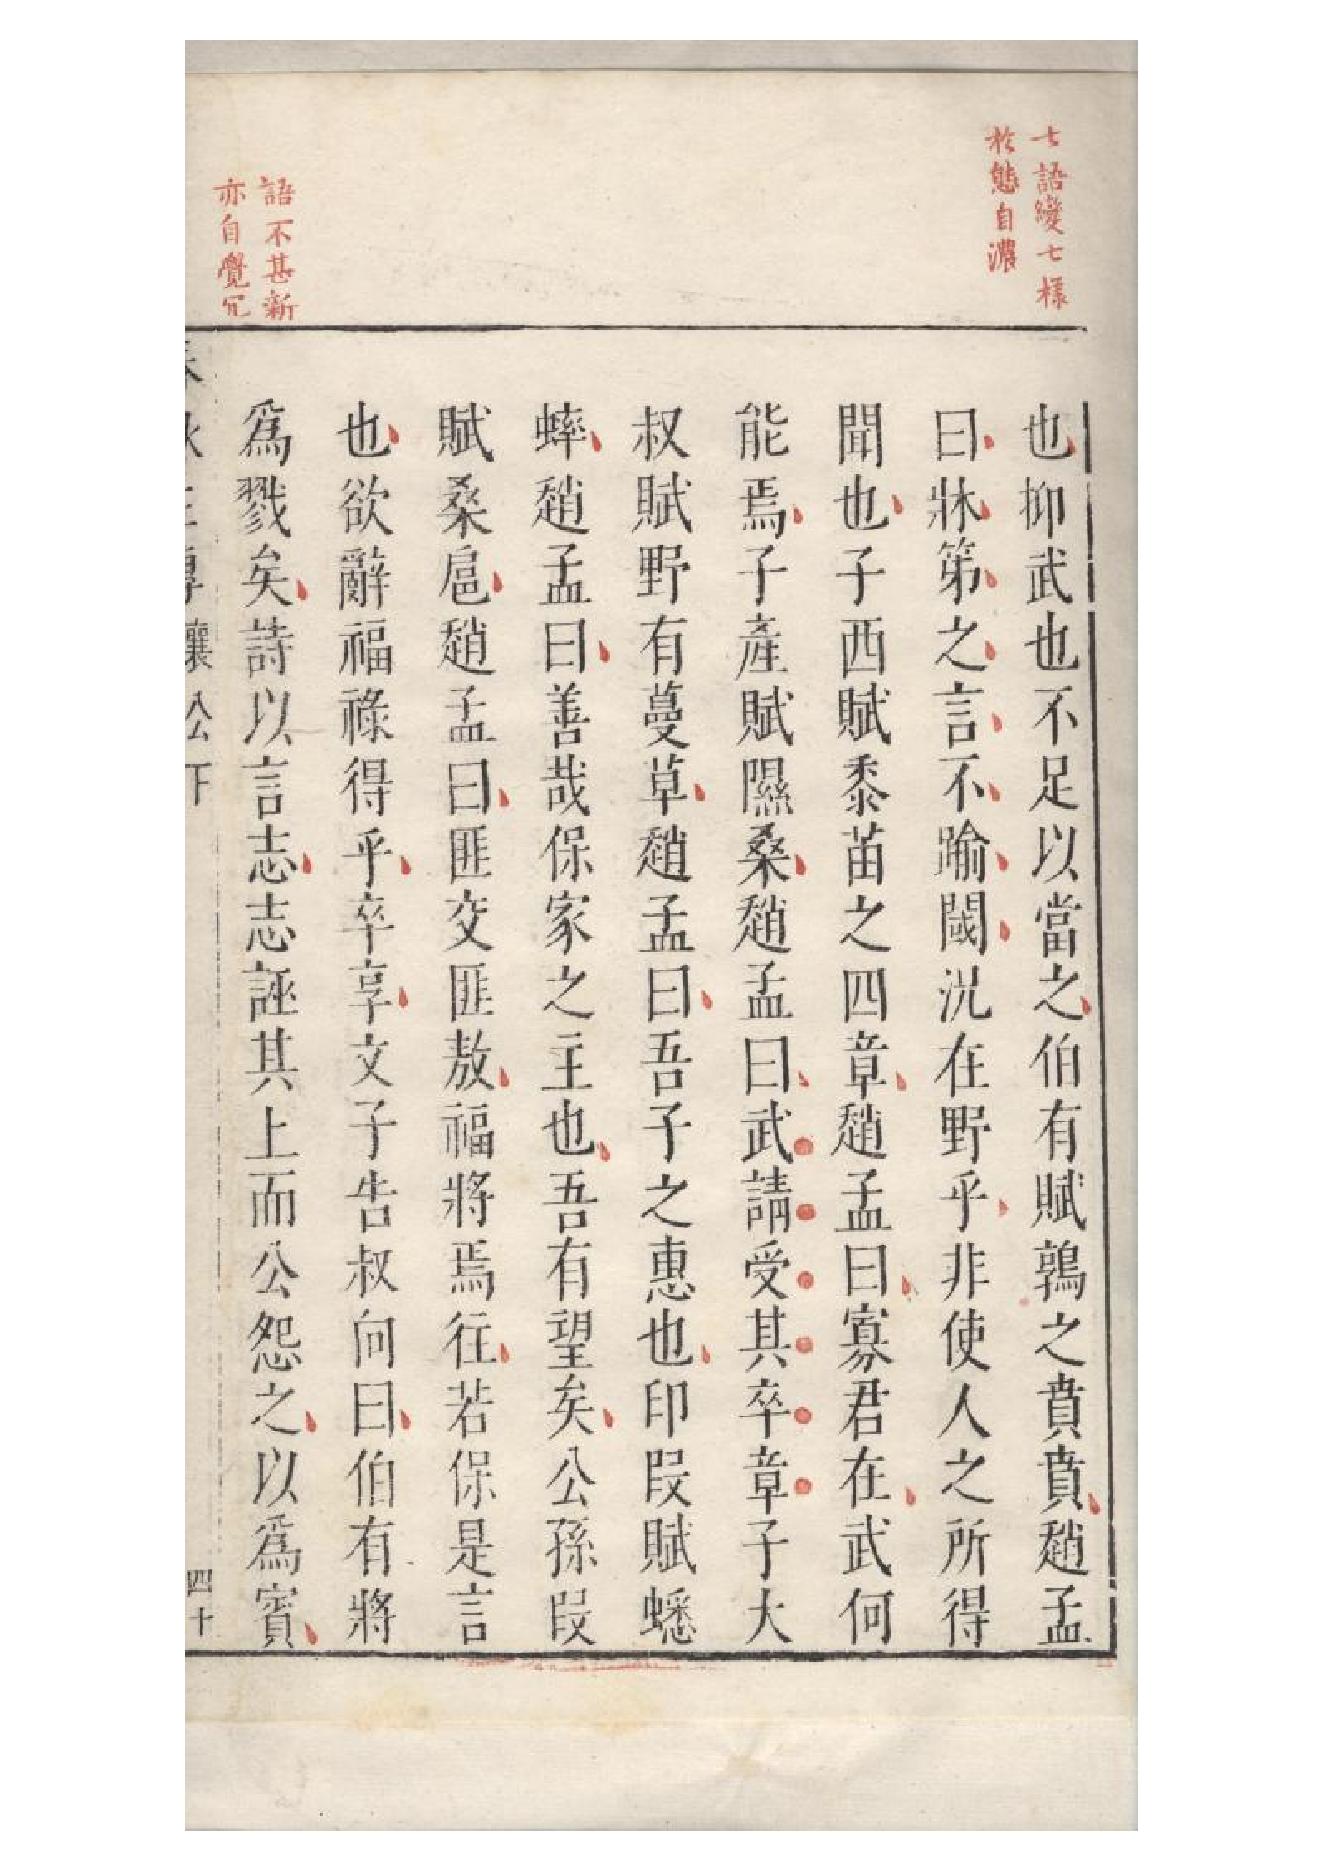 七語變七樣
於態自濃
也抑武也不足以當之伯有賦鶉之賁賁趙孟
曰牀笫之言不踰閾況在野乎非使人之所得
聞也子西賦黍苗之四章趙孟曰寡君在武何
能焉子產賦隰桑趙孟曰武請受其卒章子大
叔賦野有蔓草趙孟曰吾子之惠也印段賦蟋
蟀趙孟曰善哉保家之主也吾有望矣公孫段
賦桑扈趙孟曰匪交匪敖福將焉往若保是言
也欲辭福祿得乎卒享文子告叔向曰伯有將
為戮矣詩以言志志誣其上而公怨之以為賓
語不甚新
亦自覺冗
春秋左傳 襄公下 四十